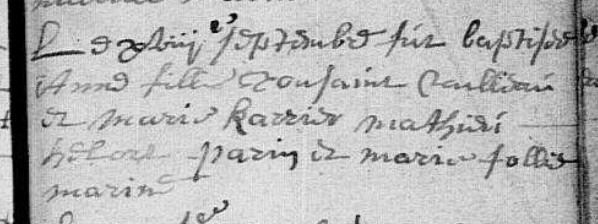 Le xviij e septembe fut baptisee
Anne fille Tousaint
et marie karrier mathieu
parin et marie follie
marine